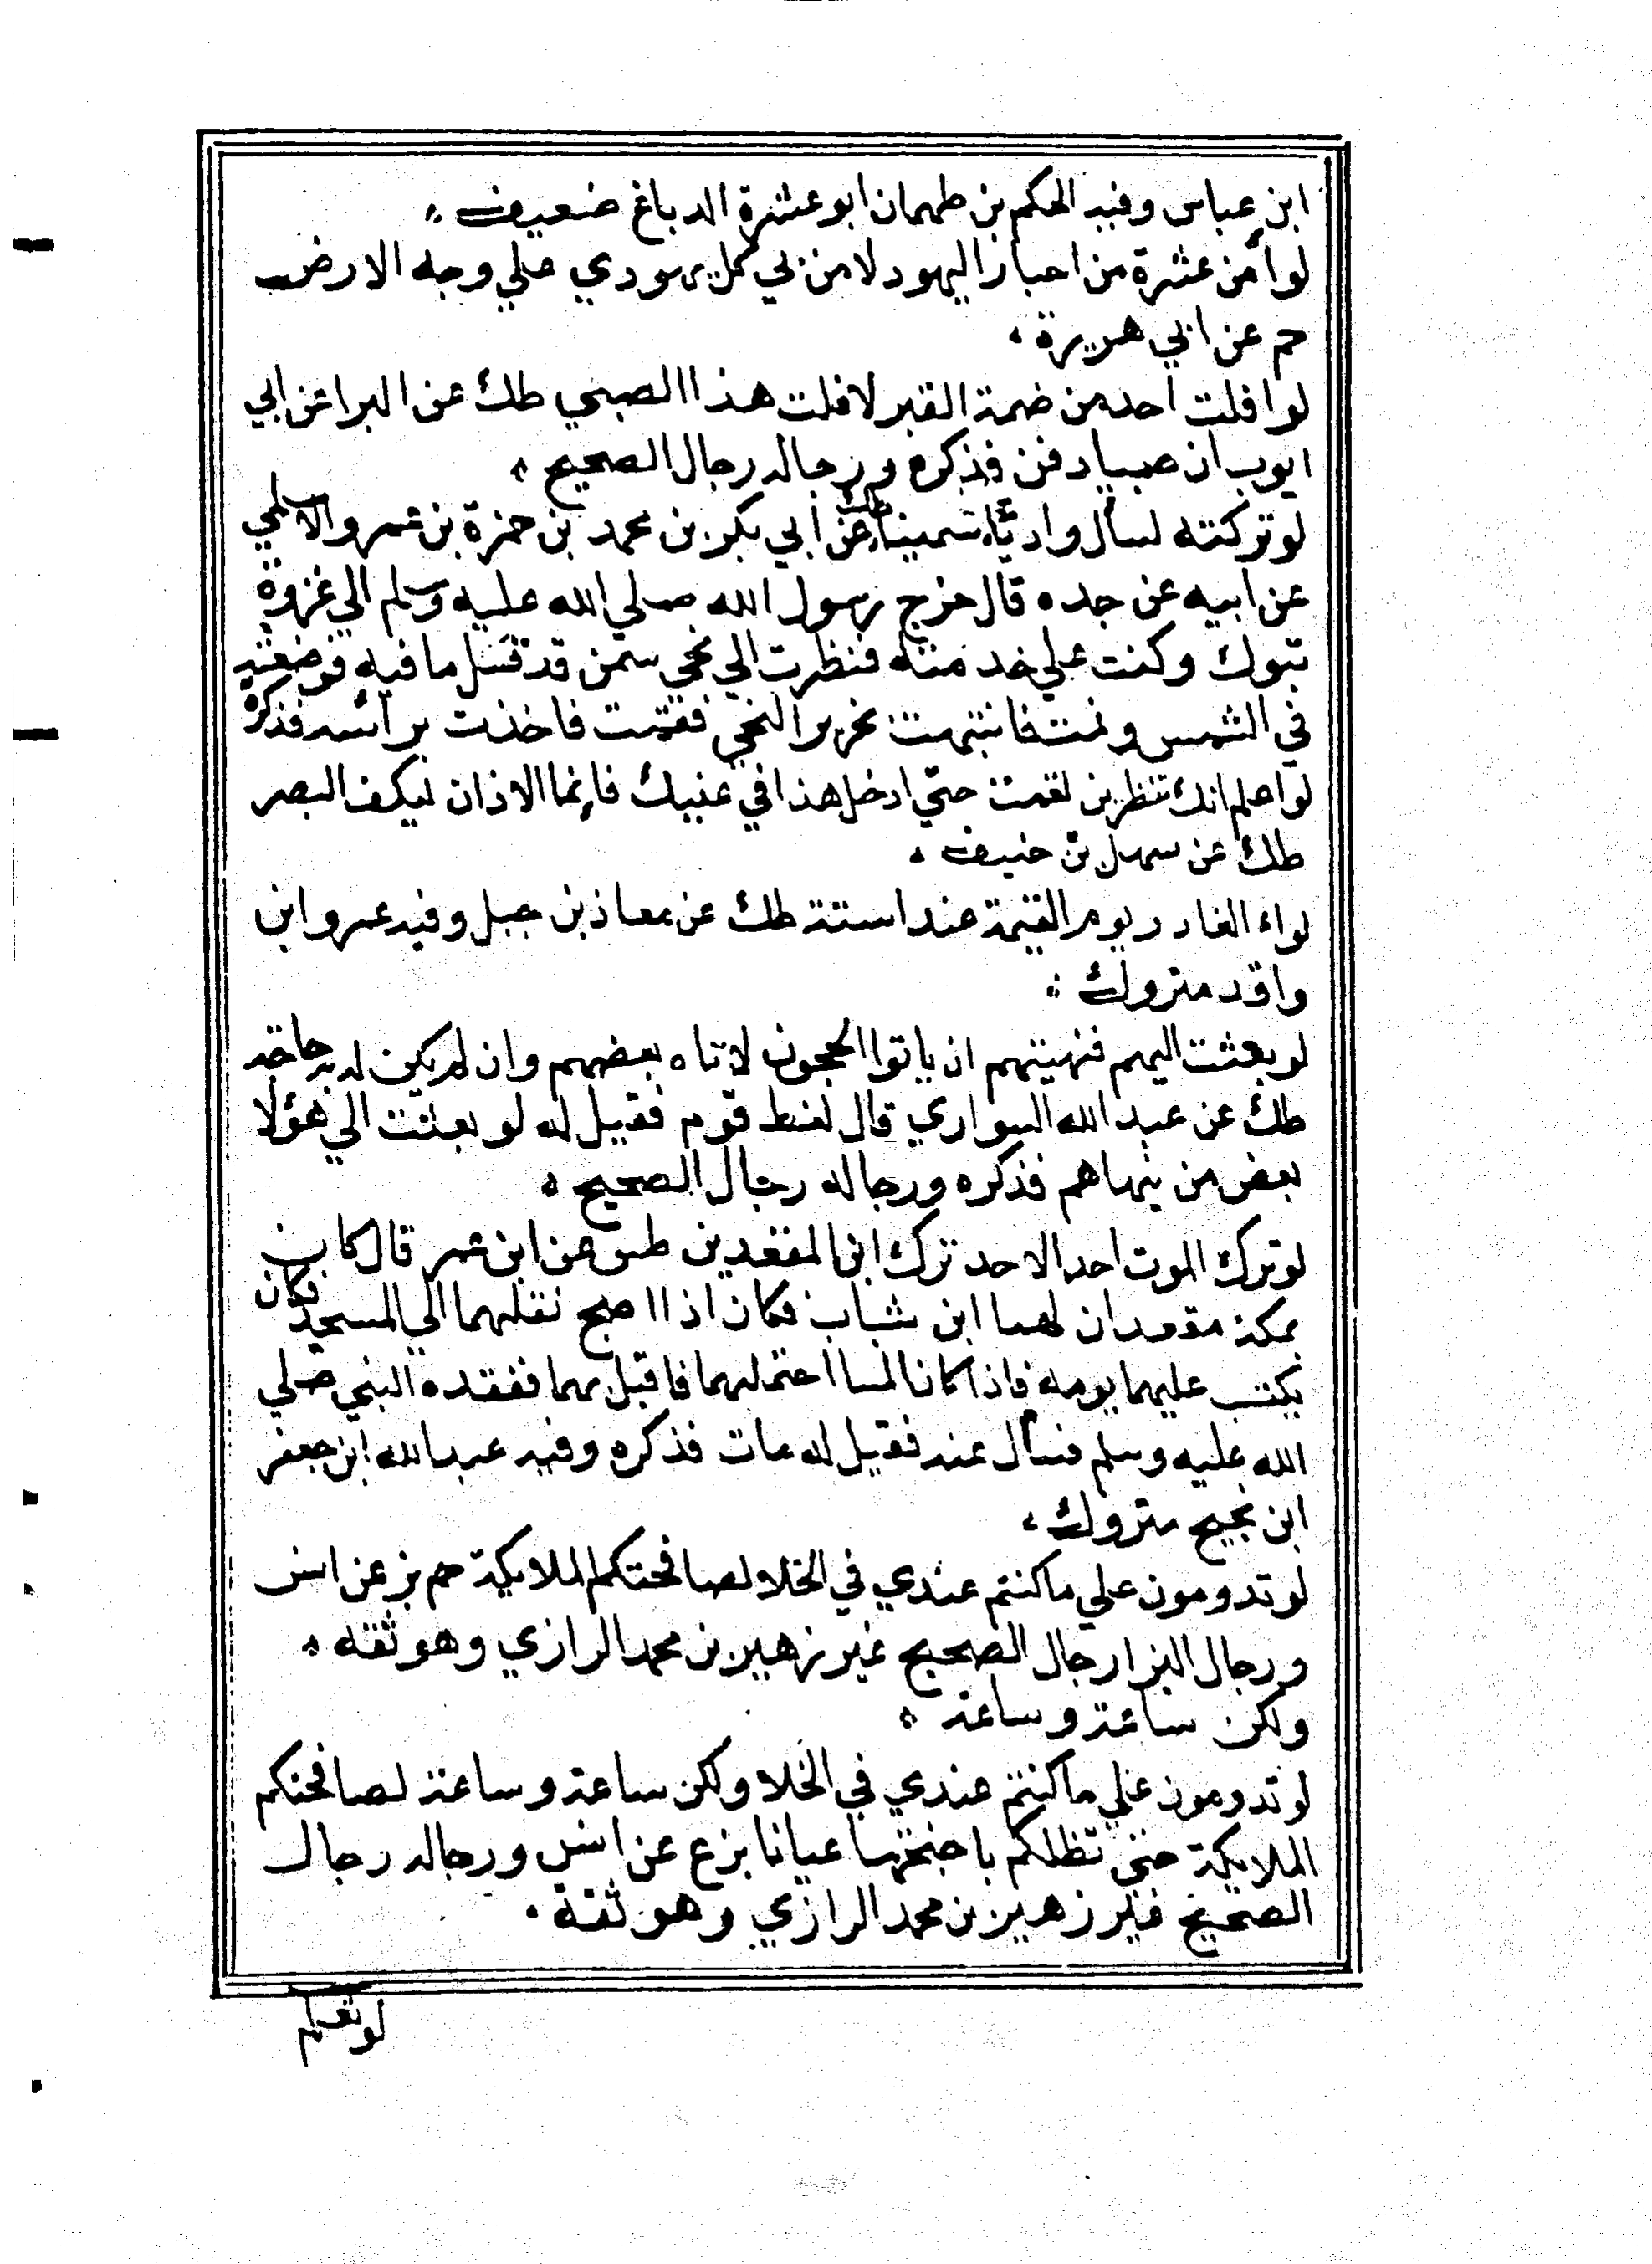 ابن عباس وفيه الحكم بن طهمان ابو عشرة الدباغ ضعيف
لو أمن عشرة من احبار اليهود لامن بي كل يهودي علي وجه الارض
حم عن ابي هريرة
لو افلت احد من ضمة القبر لافلت هذا الصبي طك عن البرا عن ابي
ايوب ان صبيا دفن فذكره ورجاله رجال الصحيح
لو تركته لسال واديًا سمينا طك عن ابي بكر بن محمد بن حمزة بن عمرو الاسلمي
عن ابيه عن جده قال خرج رسول الله صلي الله عليه وسلم الي غزوة
تبوك وكنت علي خدمته فنظرت الي نحي سمن قد قسل ما فيه فوضعته
في الشمس ونمت فانتبهت بخرير النحي فقمت فاخذت براسه فذكره
لو اعلم انك تنظرين لقمت حتي ادخل هذا في عنيك فانما الاذان ليكف البصر
طك عن سهل بن حنيف
لواء الغادر يوم القيمة عند استته طك عن معاذ بن جبل وفيه عمرو ابن
واقد متروك
لو بعثت اليهم فنهيتهم ان ياتوا الحجون لاتاه بعضهم وان لم يكن له به حاجه
طك عن عبد الله السواري قال لغط قوم فقيل له لو بعثت الي هؤلا
بعض من ينهاهم فذكره ورجاله رجال الصحيح
لو ترك الموت احدا لاحد ترك ابن المقعدين طس عن ابن عمر قال كان
بمكة مقعدان لهما ابن شباب فكان اذا اصبح نقلهما الي المسجد فكان
يكتسب عليهما يومه فاذا كان المسا احتملهما فاقبل بهما ففقده النبي صلي
الله عليه وسلم فسأل عنه فقيل له مات فذكره وفيه عبد الله ابن جعفر
ابن نجيح متروك
لو تدومون علي ما كنتم عندي في الخلا لصافحتكم الملايكة حم بز عن انس
ورجال البزار رجال الصحيح غير زهير بن محمد الرازي وهو ثقه
ولكن ساعة وساعة
لو تدومون علي ما كنتم عندي في الخلا ولكن ساعة وساعة لصافحتكم
الملايكة حتي تظلكم باجنحتها عيانا بز ع عن انس ورجاله رجال
الصحيح غير زهير بن محمد الرازي وهو ثقة
لو تعلم